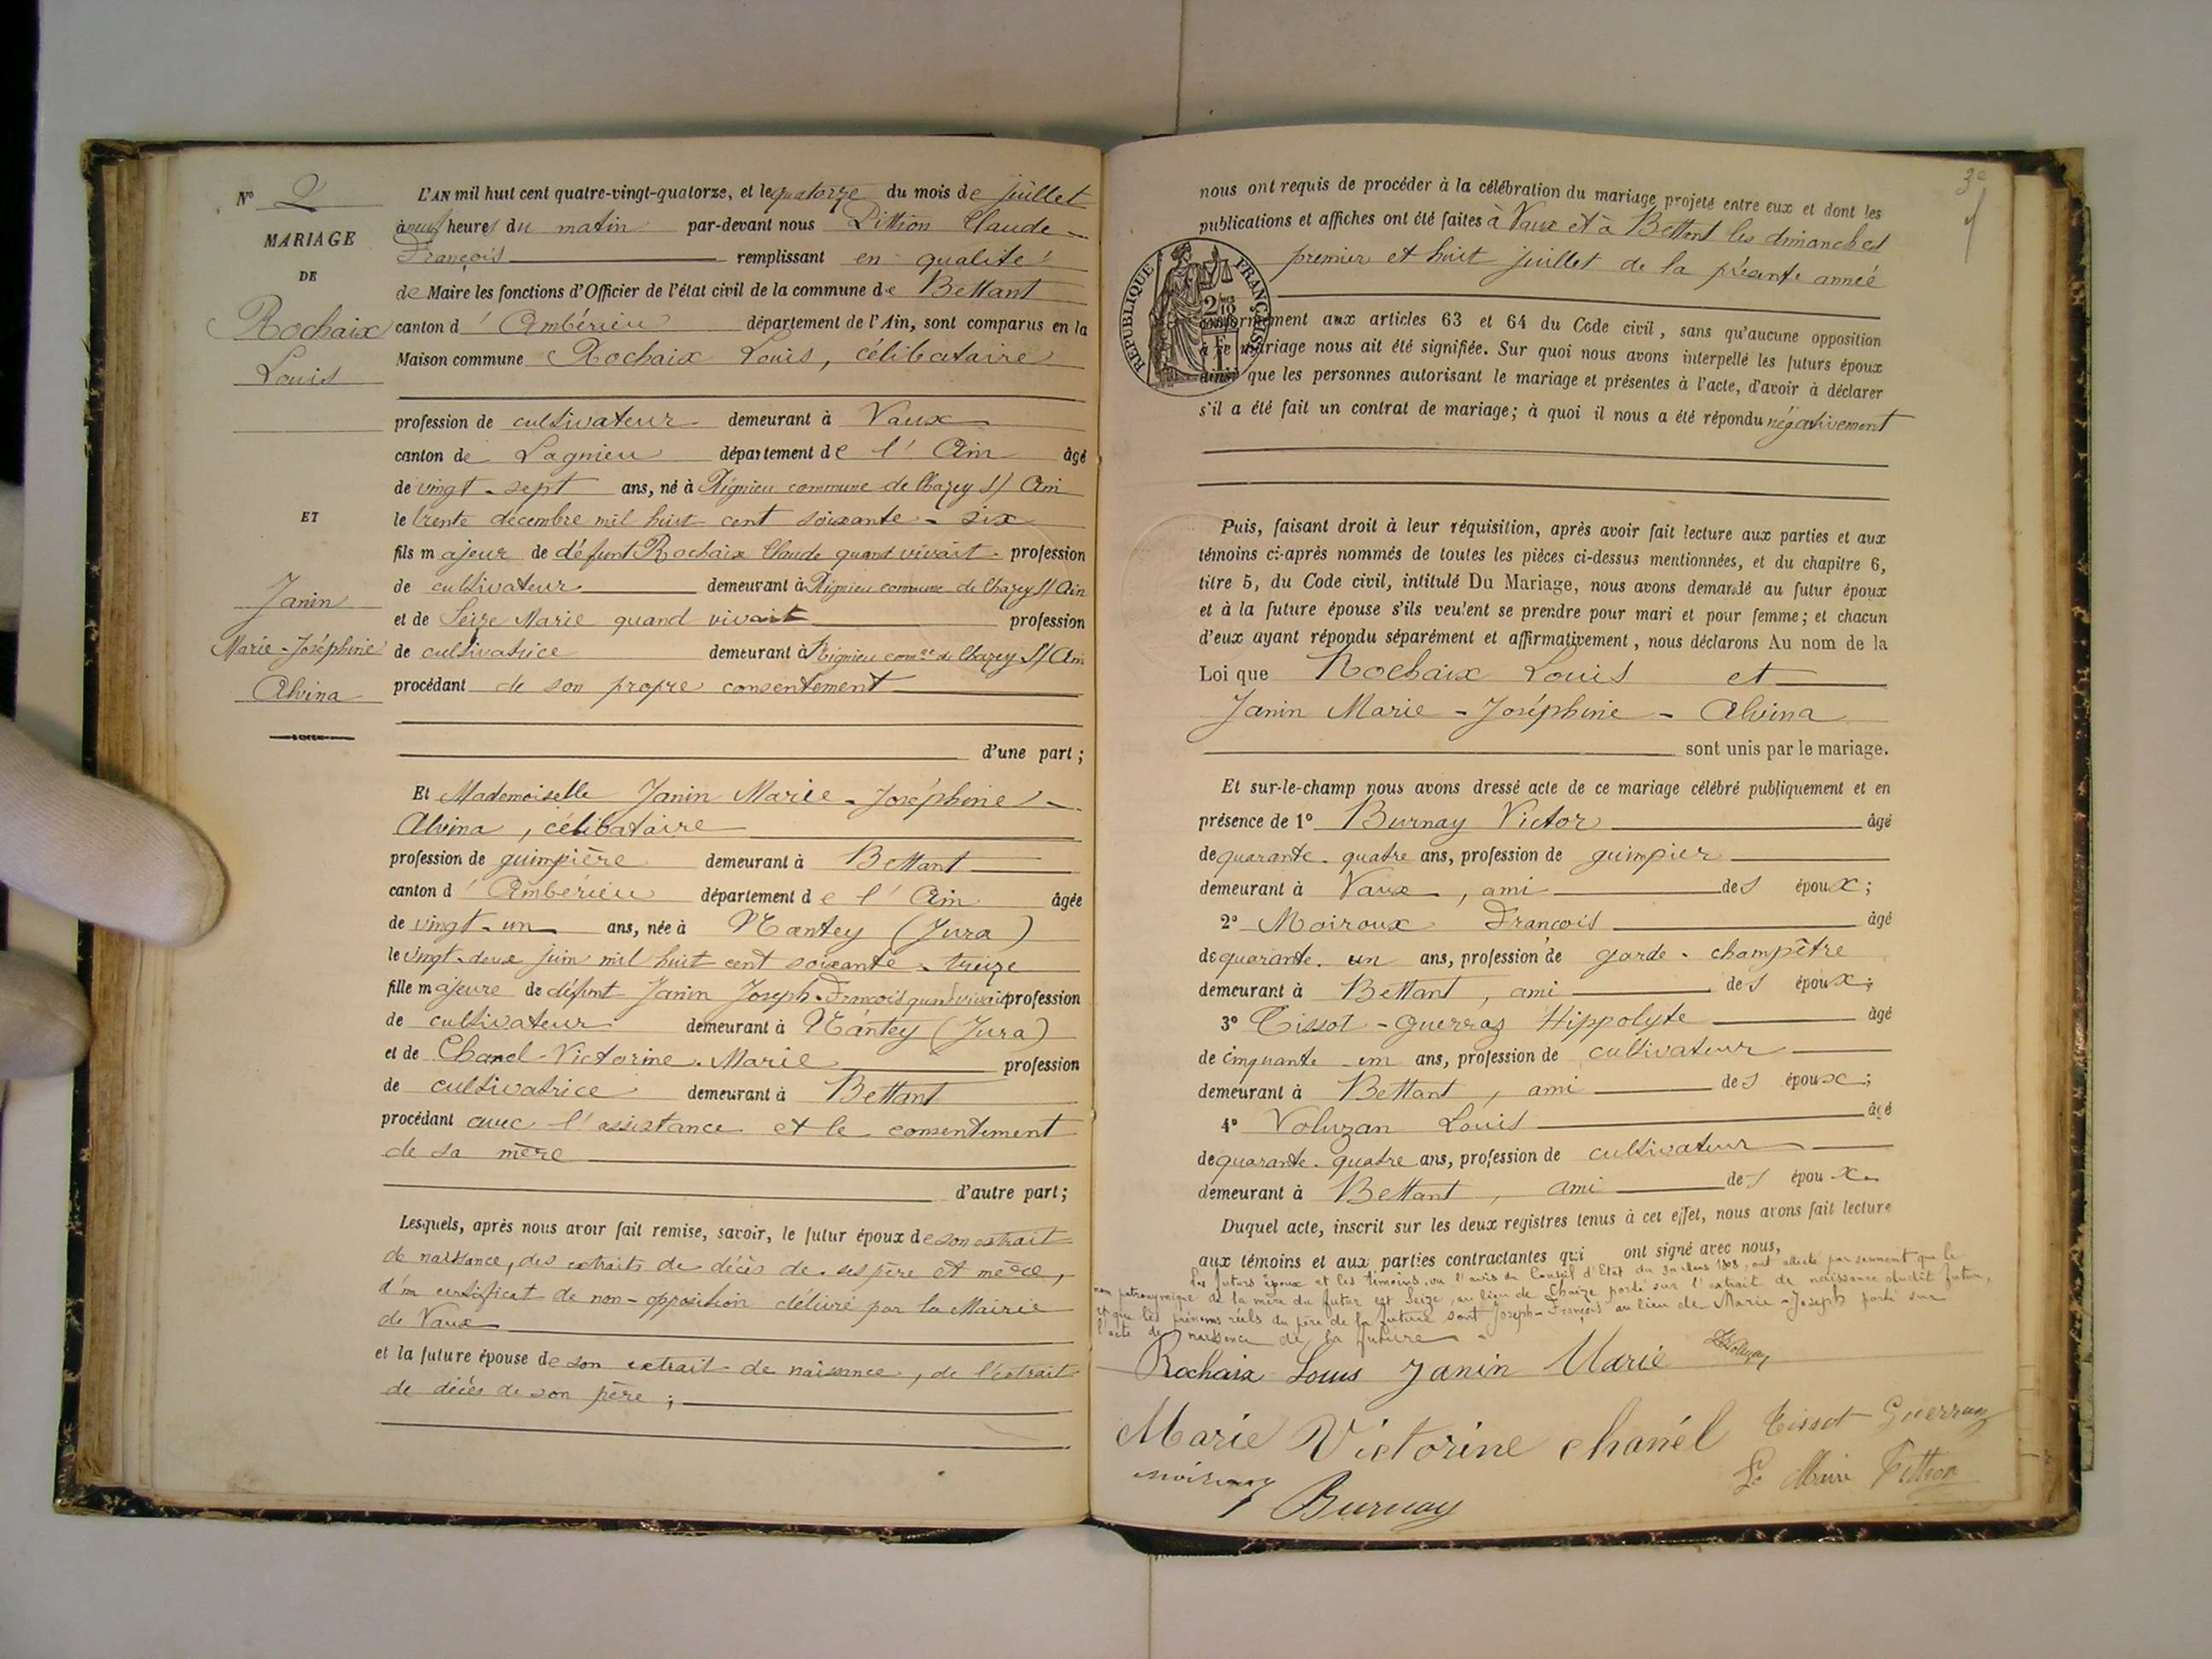 N° 2
MARIAGE
DE
Rochaix
Louis
ET
Janin
Marie-Joséphine
Alvina
L'AN mil huit cent quatre-vingt-quatorze, et le quatorze du mois de juillet
à neuf heures du matin par-devant nous Littion Claude-
François remplissant en qualité
de Maire les fonctions d'Officier de l'état civil de la commune de Bettant
canton d'Ambérieu département de l'Ain, sont comparus en la
Maison commune Rochaix Louis, célibataire
profession de cultivateur demeurant à Vaux
canton de Lagnieu département de l'Ain âgé
de vingt-sept ans, né à Rignieu commune de Chazey s/ Ain
le trente décembre mil huit cent soixante-six
fils majeur de défunt Rochaix Claude quand vivait profession
de cultivateur demeurant à Rignieu commune de Chazey s/ Ain
et de Seize Marie quand vivait profession
de cultivatrice demeurant à Rignieu comne de Chazey s/ Ain
procédant de son propre consentement
d'une part;
Et Mademoiselle Janin Marie-Joséphine-
Alvina, célibataire
profession de guimpière demeurant à Bettant
canton d'Ambérieu département de l'Ain âgée
de vingt-un ans, née à Nantey (Jura)
le vingt-deux juin mil huit cent soixante-treize
fille majeure de défunt Janin Joseph-François quand vivait profession
de cultivateur demeurant à Nantey (Jura)
et de Chanel-Victorine-Marie profession
de cultivatrice demeurant à Bettant
procédant avec l'assistance et le consentement
de sa mère
d'autre part;
Lesquels, après nous avoir fait remise, savoir, le futur époux de son extrait
de naissance, des extraits de décès de ses père et mère,
d'un certificat de non-opposition délivré par la Mairie
de Vaux
et la future épouse de son extrait de naissance, de l'extrait
de décès de son père;
3e
nous ont requis de procéder à la célébration du mariage projeté entre eux et dont les
publications et affiches ont été faites à Vaux et à Bettant les dimanches
premier et huit juillet de la présente année
REPUBLIQUE FRANÇAISE
conformément aux articles 63 et 64 du Code civil, sans qu'aucune opposition
à ce mariage nous ait été signifiée. Sur quoi nous avons interpellé les futurs époux
ainsi que les personnes autorisant le mariage et présentes à l'acte, d'avoir à déclarer
s'il a été fait un contrat de mariage; à quoi il nous a été répondu négativement
Puis, faisant droit à leur réquisition, après avoir fait lecture aux parties et aux
témoins ci-après nommés de toutes les pièces ci-dessus mentionnées, et du chapitre 6,
titre 5, du Code civil, intitulé Du Mariage, nous avons demandé au futur époux
et à la future épouse s'ils veulent se prendre pour mari et pour femme; et chacun
d'eux ayant répondu séparément et affirmativement, nous déclarons Au nom de la
Loi que Rochaix Louis et
Janin Marie-Joséphine-Alvina
sont unis par le mariage.
Et sur-le-champ nous avons dressé acte de ce mariage célébré publiquement et en
présence de 1° Burnay Victor âgé
de quarante-quatre ans, profession de guimpier
demeurant à Vaux, ami des époux;
2° Moiroux François âgé
de quarante-un ans, profession de garde-champêtre
demeurant à Bettant, ami des époux;
3° Tissot-Guerraz Hippolyte âgé
de cinquante-un ans, profession de cultivateur
demeurant à Bettant, ami des époux;
4° Voluzan Louis âgé
de quarante-quatre ans, profession de cultivateur
demeurant à Bettant, ami des époux.
Duquel acte, inscrit sur les deux registres tenus à cet effet, nous avons fait lecture
aux témoins et aux parties contractantes qui ont signé avec nous,
Les futurs époux et les témoins, vu l'avis du Conseil d'Etat du 30 mars 1808, ont attesté par serment que le
nom patronymique de la mère du futur est Seize, au lieu de Chaize porté sur l'extrait de naissance dudit futur,
et que les prénoms réels du père de la future sont Joseph-François au lieu de Marie-Joseph porté sur
l'acte de naissance de la future.
Rochaix Louis Janin Marie Voluzan
Marie Victorine Chanél Tissot Guerraz
moiroux Le Maire Littion
Burnay